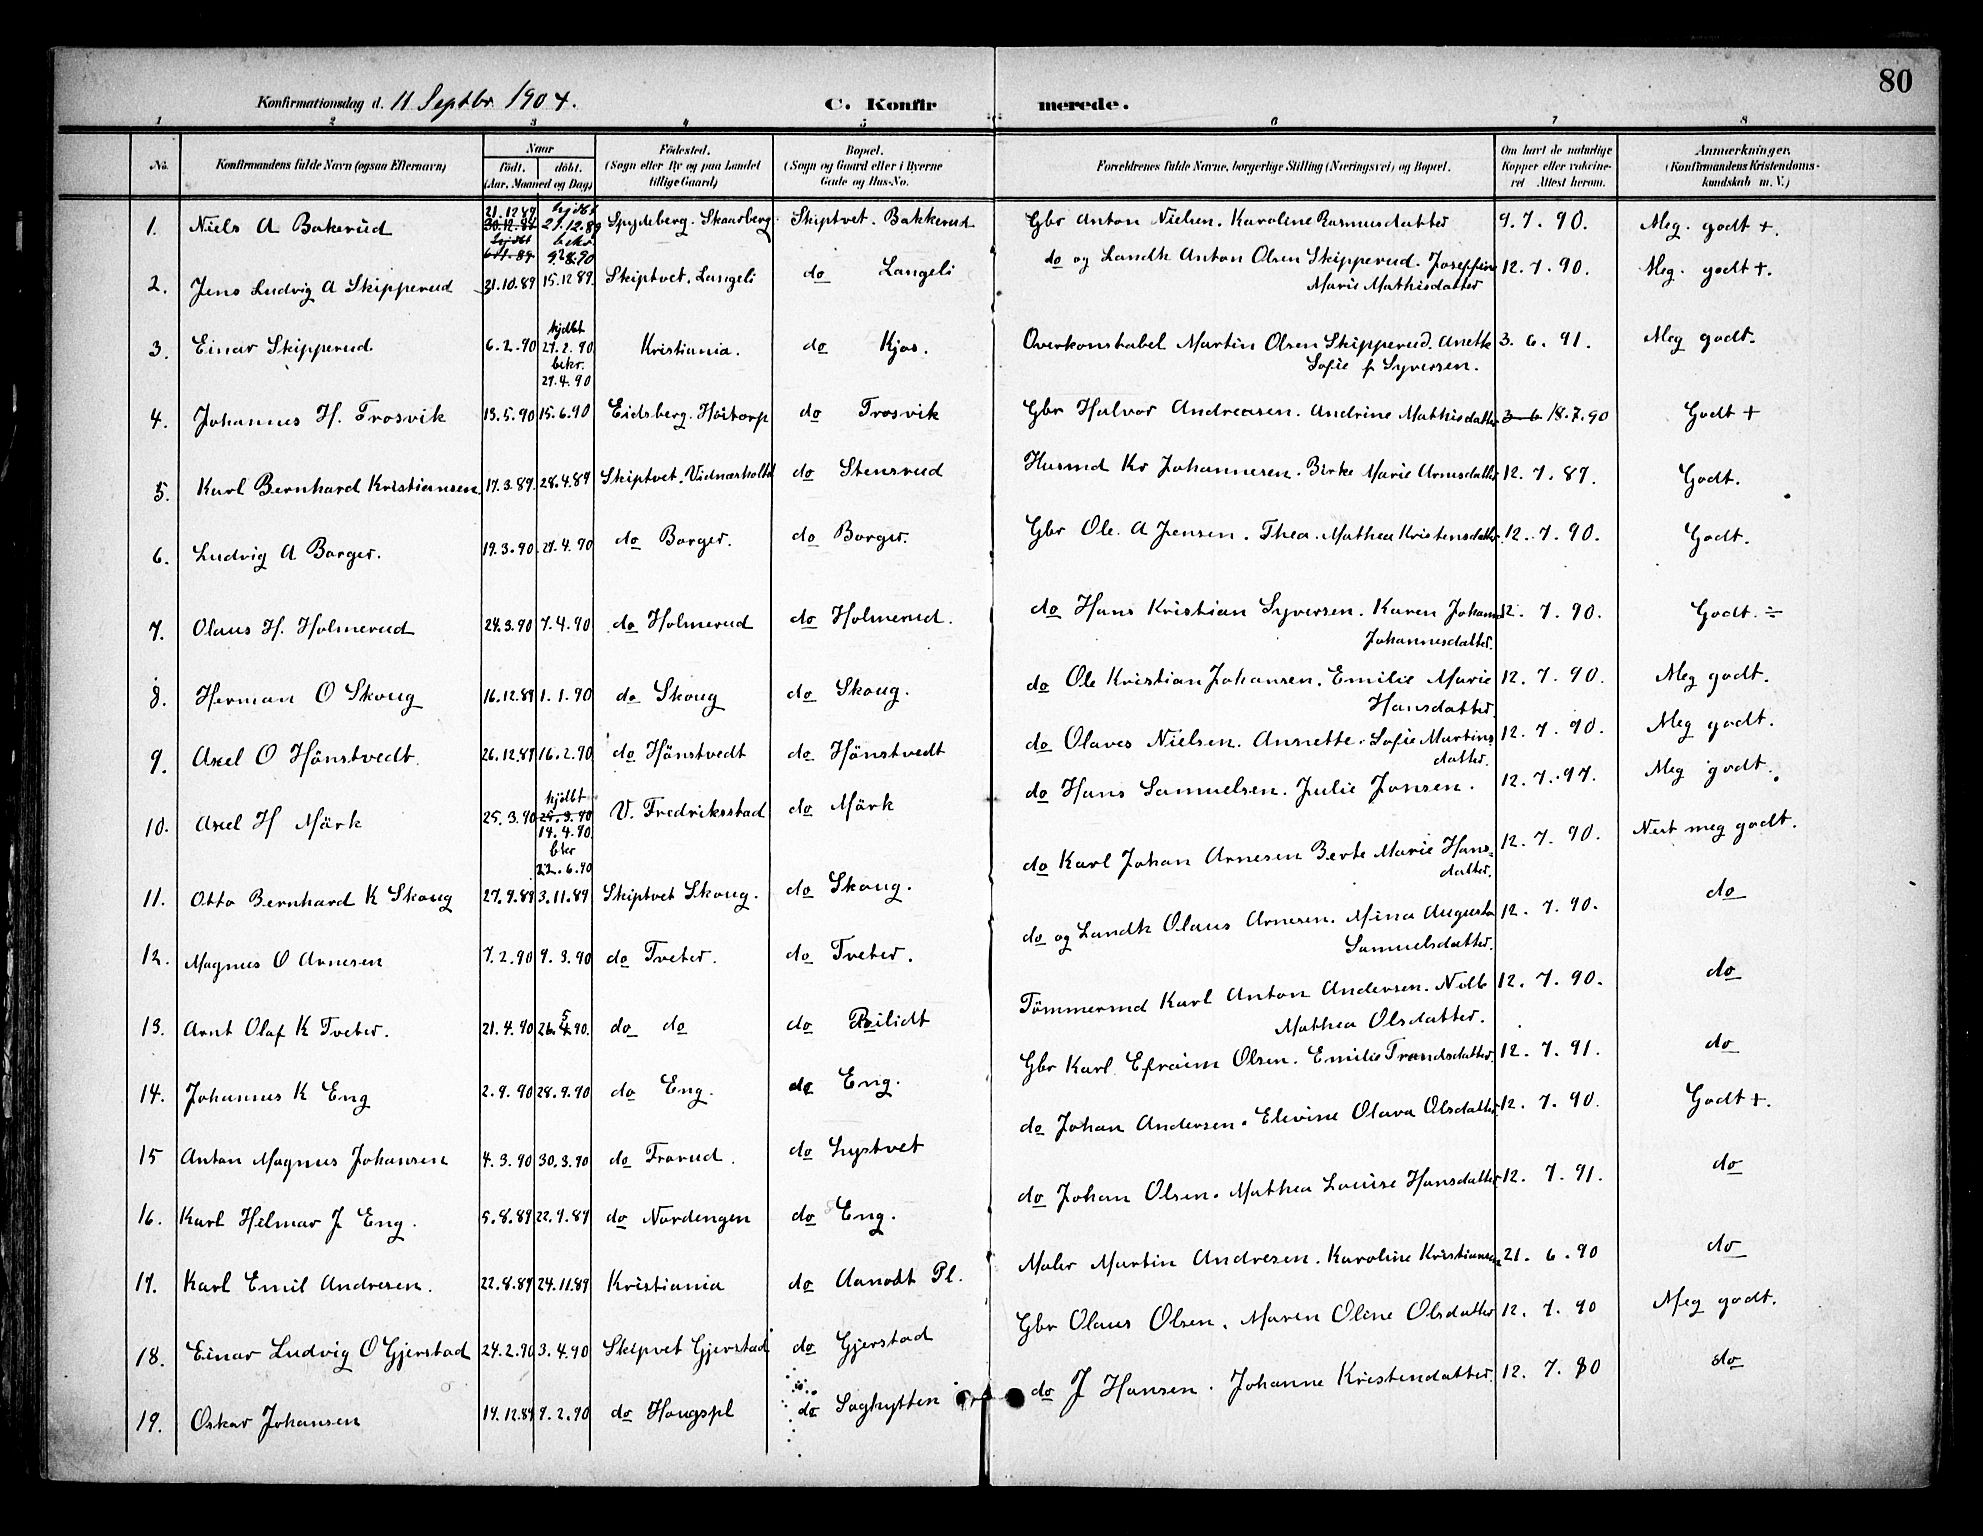 80
Konfirmationsdag d. 11 Septbr 1904. C. Konfirmerede.
1 2 3 4 5 6 7 8
No. Konfirmandens fulde Navn (ogsaa Efternavn) Naar født. døbt. (Aar, Maaned og Dag) Fødested. (Sogn eller By og paa Landet tillige Gaard) Bopæl. (Sogn og Gaard eller i Byerne Gade og Hus-No. Forældrenes fulde Navne, borgerlige Stilling (Næringsvei) og Bopæl. Om havt de naturlige Kopper eller vakcineret Attest herom. Anmærkninger. (Konfirmandens Kristendomskundskab m. V.)
1. Niels A Bakerud 21.12 89 30.12.89 hjdbt 21.12.89 bekr. 9.2.90 Spydeberg. Skaarberg Skiptvet. Bakkerud Gbr Anton Nielsen. Karoline Rasmusdatter 9. 7. 90. Meg. godt +.
2. Jens Ludvig A Skipperud 31.10.89 15.12 89. Skiptvet, Langeli do Langeli do og Landh Anton Olsen Skipperud. Josefine Marie Mathisdatter 12. 7. 90. Meg. godt +.
3. Einar Skipperud 6. 2. 90 hjdbt 27.2.90 bekr. 27.4.90 Kristiania. do Kjos. Overkonstabel Martin Olsen Skipperud. Anette Sofie f Syversen. 3. 6. 91. Meg godt.
4. Johannes H. Trosvik 13.5.90 15.6.90 Eidsberg. Höitorp do Trosvik Gbr Halvor Andreasen. Andrine Mathisdatter 3 6 18.7.90 Godt +
5. Karl Bernhard Kristiansen 17.3.89. 28.4.89 Skiptvet. Vidnæsholtet do Stensrud Husmd Kr Johannesen. Birke Marie Arnesdatter 12. 7. 87. Godt.
6. Ludvig A Borger. 19.3.90. 27.4.90 do Borger. do Borger. Gbr Ole. A Jensen. Thea. Mathea Kristensdatter 12. 7. 90. Godt.
7. Olaus H. Holmerud 24.3.90 7.4.90 do Holmerud do Holmerud. do Hans Kristian Syversen. Karen Johanne Johannesdatter. 12. 7. 90. Godt. ÷
8. Herman O Skoug 16.12.89 1. 1. 90 do Skoug do Skoug. do Ole Kristian Johansen. Emilie Marie Hansdatter. 12. 7. 90. Meg godt.
9. Axel O Hönstvedt 26.12.89 16.2.90 do Hönstvedt do Hönstvedt do Olaves Nielsen. Annette. Sofie Martinsdatter. 12. 7. 90. Meg godt.
10. Axel H Märk 25.3.90 hjdbt 25.3.90 14.4.90 bkr 22.6.90 V. Fredriksstad do Märk do Hans Samuelsen. Julie Jonsen. 12. 7. 97. Meg godt.
11. Otto Bernhard K Skoug 27.9.89 3.11.89 Skiptvet Skoug. do Skoug. do Karl Johan Arnesen Berte Marie Hansdatter. 12. 7. 90. Next meg godt.
12. Magnus O Arnesen 7.2.90 9. 3.90 do Tveter. do Tveter. do og Landh Olaus Arnesen. Mina Augusta Samuelsdatter. 12. 7. 90. do
13. Arnt Olaf K Tveter. 21. 4. 90 26.5.90. do do do Reilidt Tömmermd Karl Anton Andersen. Nilb Mathea Olsdatter. 12. 7. 90. do
14. Johannes K Eng 2. 9. 90 28.9.90 do Eng. do Eng. Gbr Karl Efraim Olsen. Emilie Trondsdatter. 12. 7. 91. do
15 Anton Magnus Johansen 4. 3. 90 30.3.90 do Frorud. do Lystvet do Johan Andersen. Elevine Olava Olsdatter 12. 7. 90. Godt +.
16. Karl Hilmar J Eng. 5.8.89 22.9.89 do Nordengen do Eng. do Johan Olsen. Mathea Louise Hansdatter 12. 7. 91. do
17. Karl Emil Andresen. 22.8.89 24.11.89 Kristiania do Aanodt Pl. Maler Martin Andresen. Karoline Kristiansen 21. 6. 90 do
18. Einar Ludvig O Gjerstad 24.2.90 3.4.90 Skipvet Gjerstad do Gjerstad Gbr Olaus Olsen. Maren Oline Olsdatter 12. 7. 90 Meg godt.
19. Oskar Johansen 14.12.89 9.2.90 do Hougspl do Saghytten do J Hansen. Johanne Kristendatter. 12. 7. 80 do